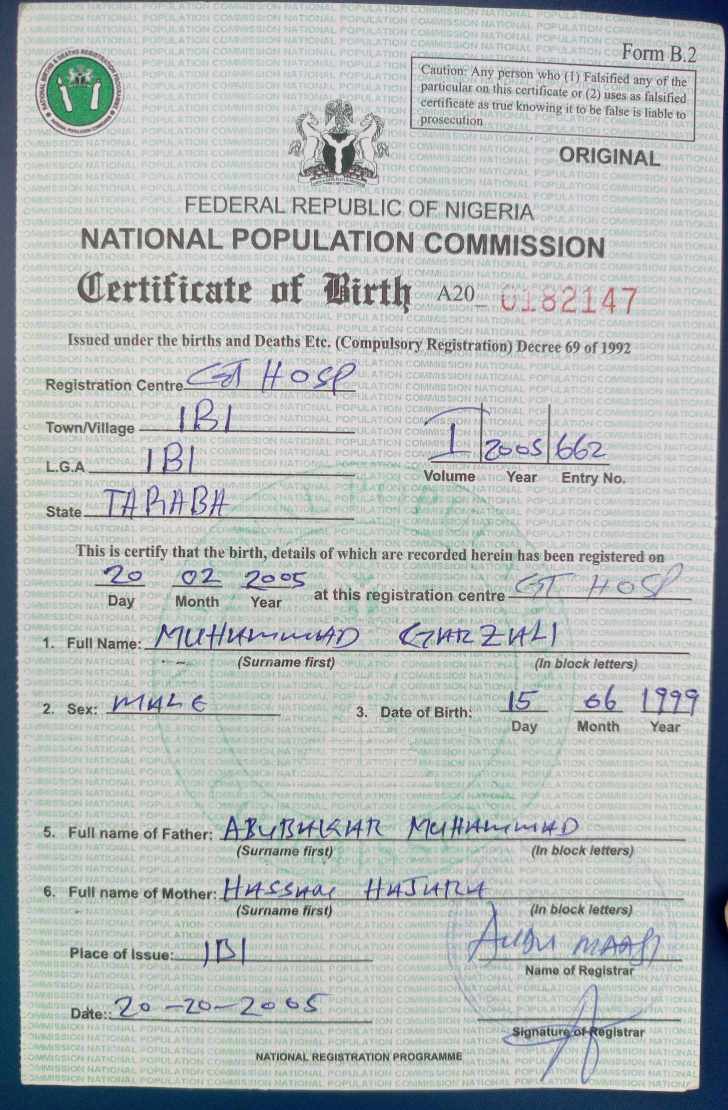 Form B.2
Caution: Any person who (1) Falsified any of the
particular on this certificate or (2) uses as falsified
certificate as true knowing it to be false is liable to
prosecution
ORIGINAL
FEDERAL REPUBLIC OF NIGERIA
NATIONAL POPULATION COMMISSION
Certificate of Birth A20_ 0182147
Issued under the births and Deaths Etc. (Compulsory Registration) Decree 69 of 1992
Registration Centre GT HOSP
Town/Village IBI
L.G.A IBI
I 2005 662
Volume Year Entry No.
State TARABA
This is certify that the birth, details of which are recorded herein has been registered on
20 02 2005 at this registration centre GT HOSP
Day Month Year
1. Full Name: MUHAMMAD GARZALI
(Surname first) (In block letters)
2. Sex: MALE 3. Date of Birth: 15 06 1999
Day Month Year
5. Full name of Father: ABUBAKAR MUHAMMAD
(Surname first) (In block letters)
6. Full name of Mother: HASSHAI HAJARA
(Surname first) (In block letters)
Place of Issue: IBI
Name of Registrar
Date:: 20-20-2005
Signature of Registrar
NATIONAL REGISTRATION PROGRAMME